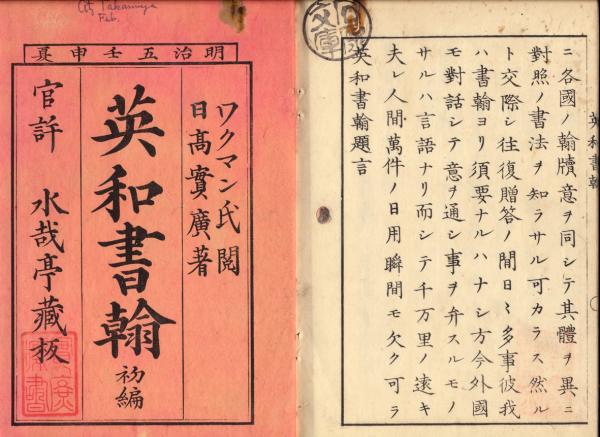 明治五壬申夏
ワクマン氏閲
日高實廣著
英和書翰 初編
官許 水哉亭藏板
英和書翰題言
夫レ人間萬件ノ日用瞬間モ欠ク可ラ
サルハ言語ナリ而シテ千万里ノ遠キ
モ對話シテ意ヲ通シ事ヲ弁スルモノ
ハ書翰ヨリ須要ナルハナシ方今外國
ト交際シ往復贈答ノ間日〻多事彼我
對照ノ書法ヲ知ラサル可カラス然ル
ニ各國ノ翰牘意ヲ同シテ其體ヲ異ニ
英和書翰
文庫